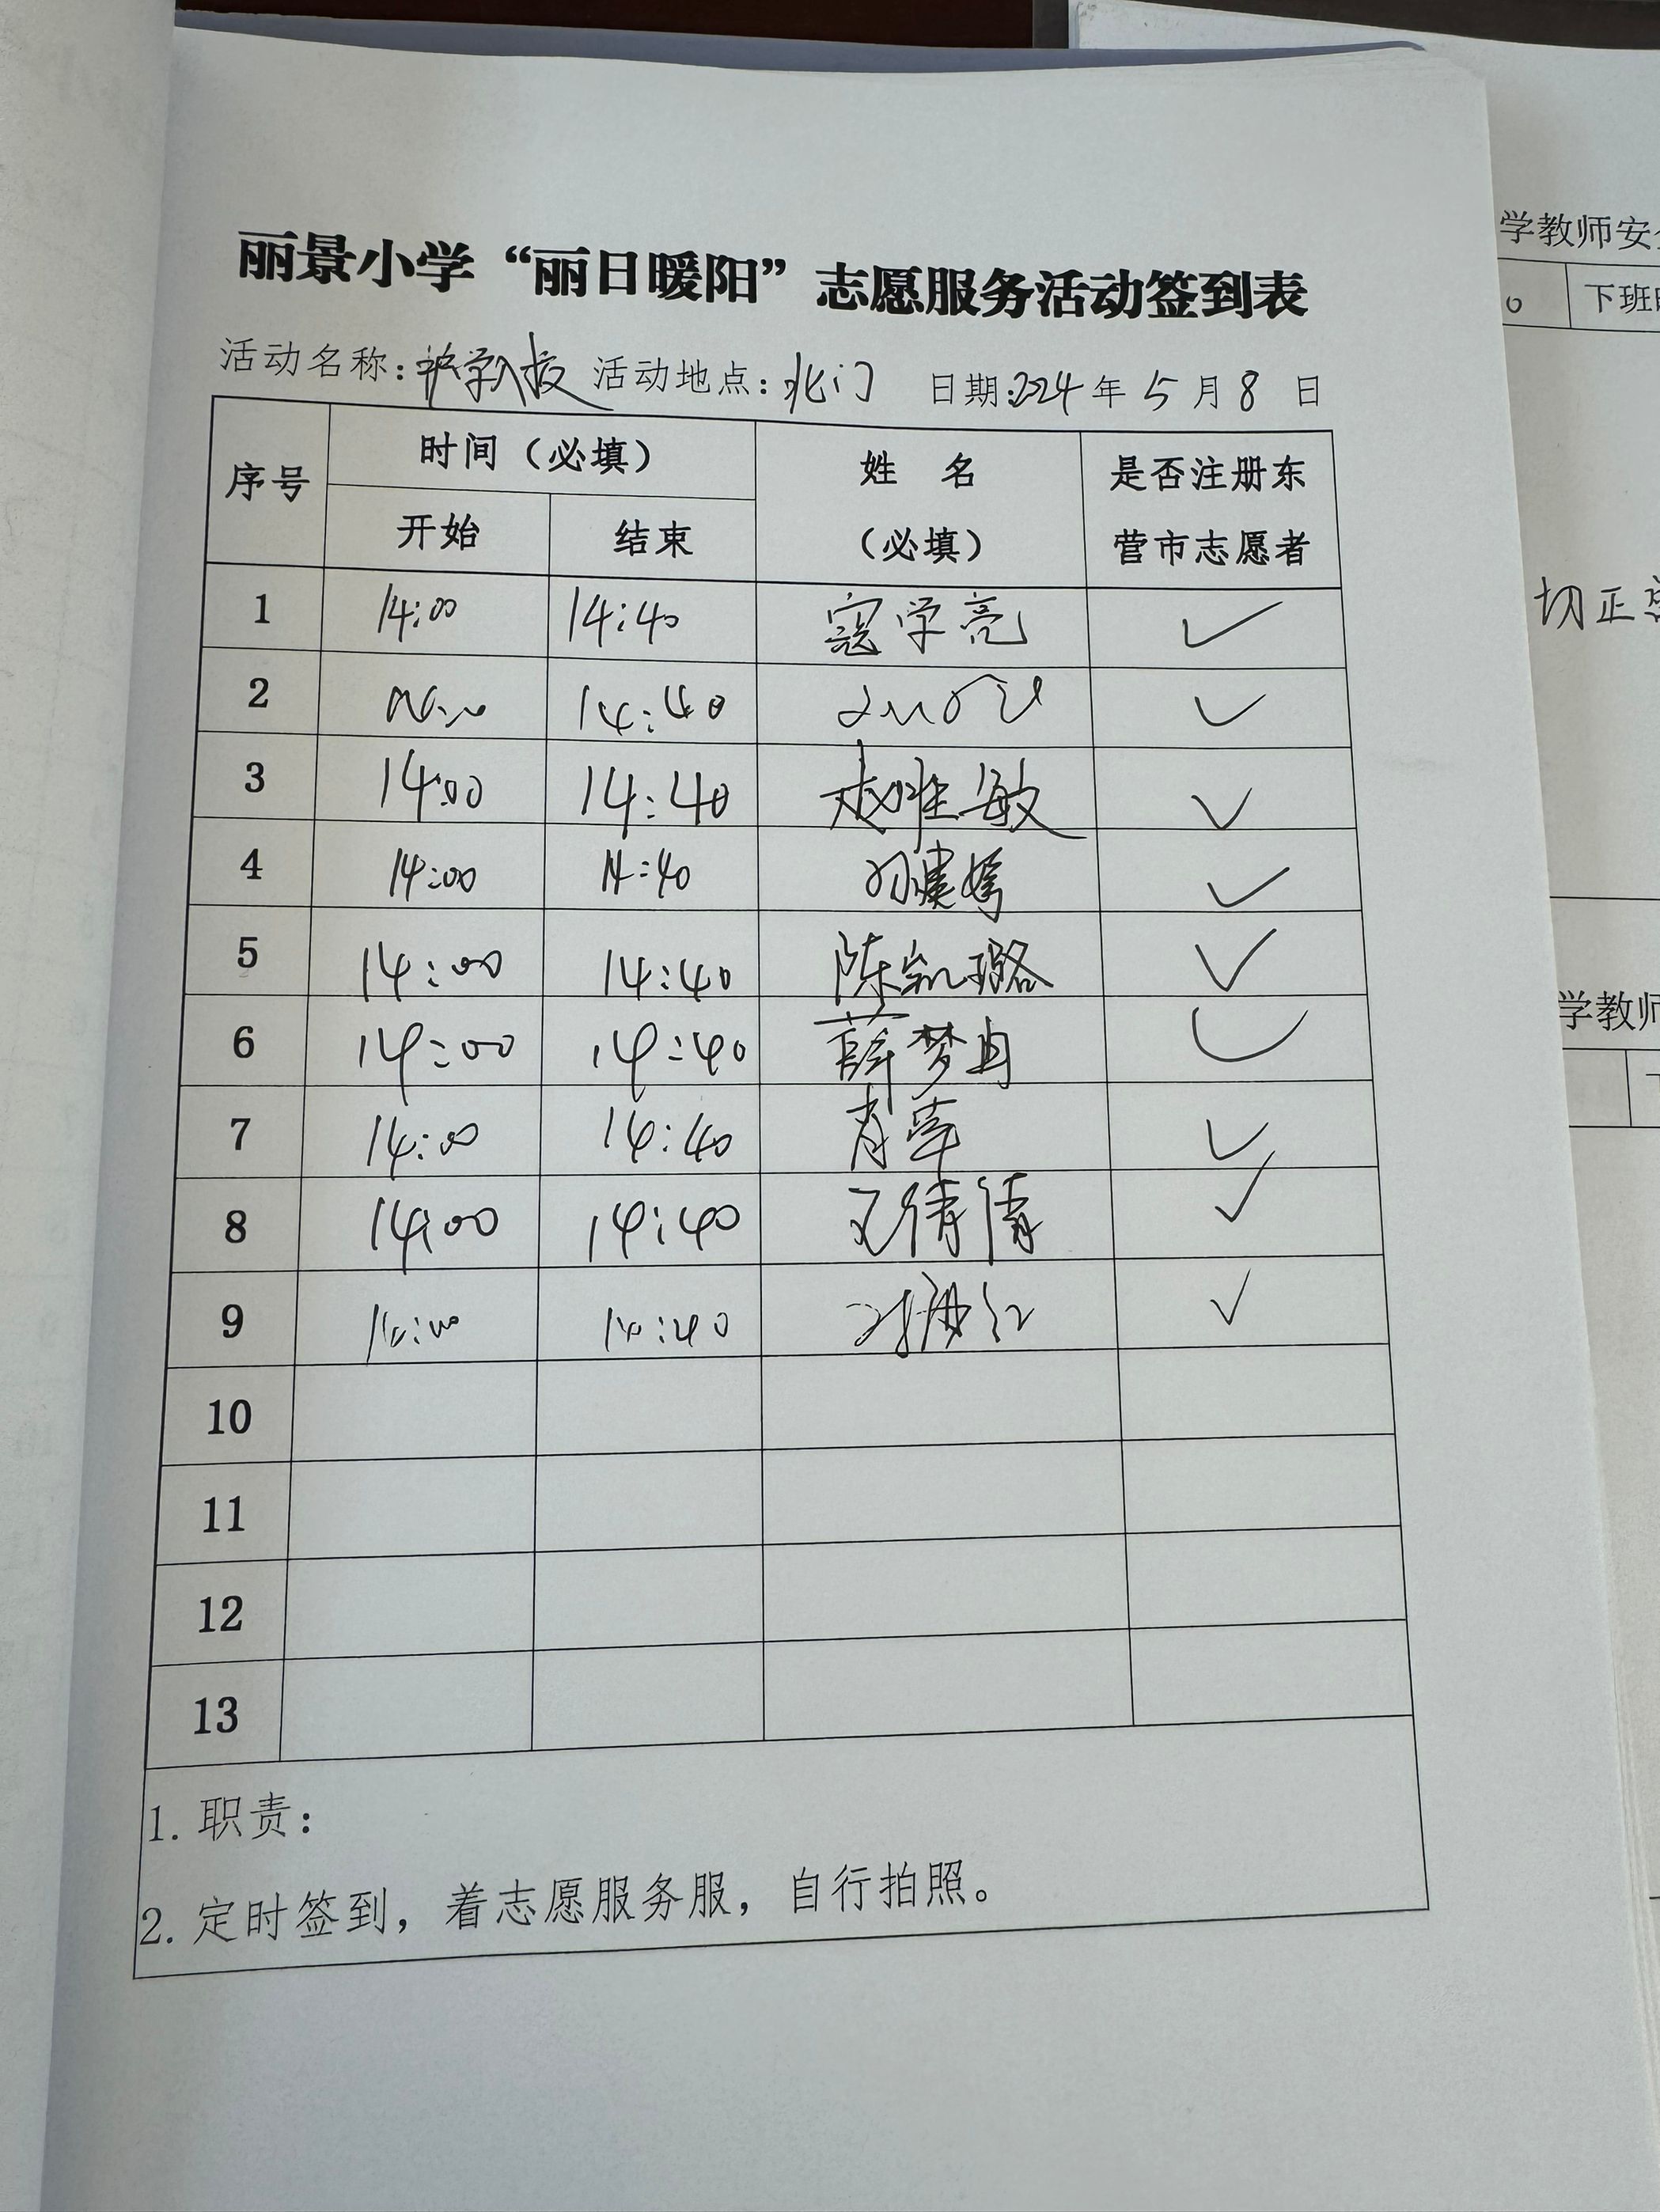 丽景小学“丽日暖阳”志愿服务活动签到表
活动名称:护学入校 活动地点:北门 日期:2024年5月8日
序号 时间（必填） 姓 名（必填） 是否注册东营市志愿者
开始 结束
1 14:00 14:40 寇学亮 ✓
2 14:00 14:40 ✓
3 14:00 14:40 敏 ✓
4 14:00 14:40 孙 ✓
5 14:00 14:40 陈凯璐 ✓
6 14:00 14:40 薛梦 ✓
7 14:00 14:40 肖 ✓
8 14:00 14:40 王倩倩 ✓
9 14:00 14:40 红 ✓
10
11
12
13
1. 职责:
2. 定时签到，着志愿服务服，自行拍照。
学教师安
下班
切正
学教师